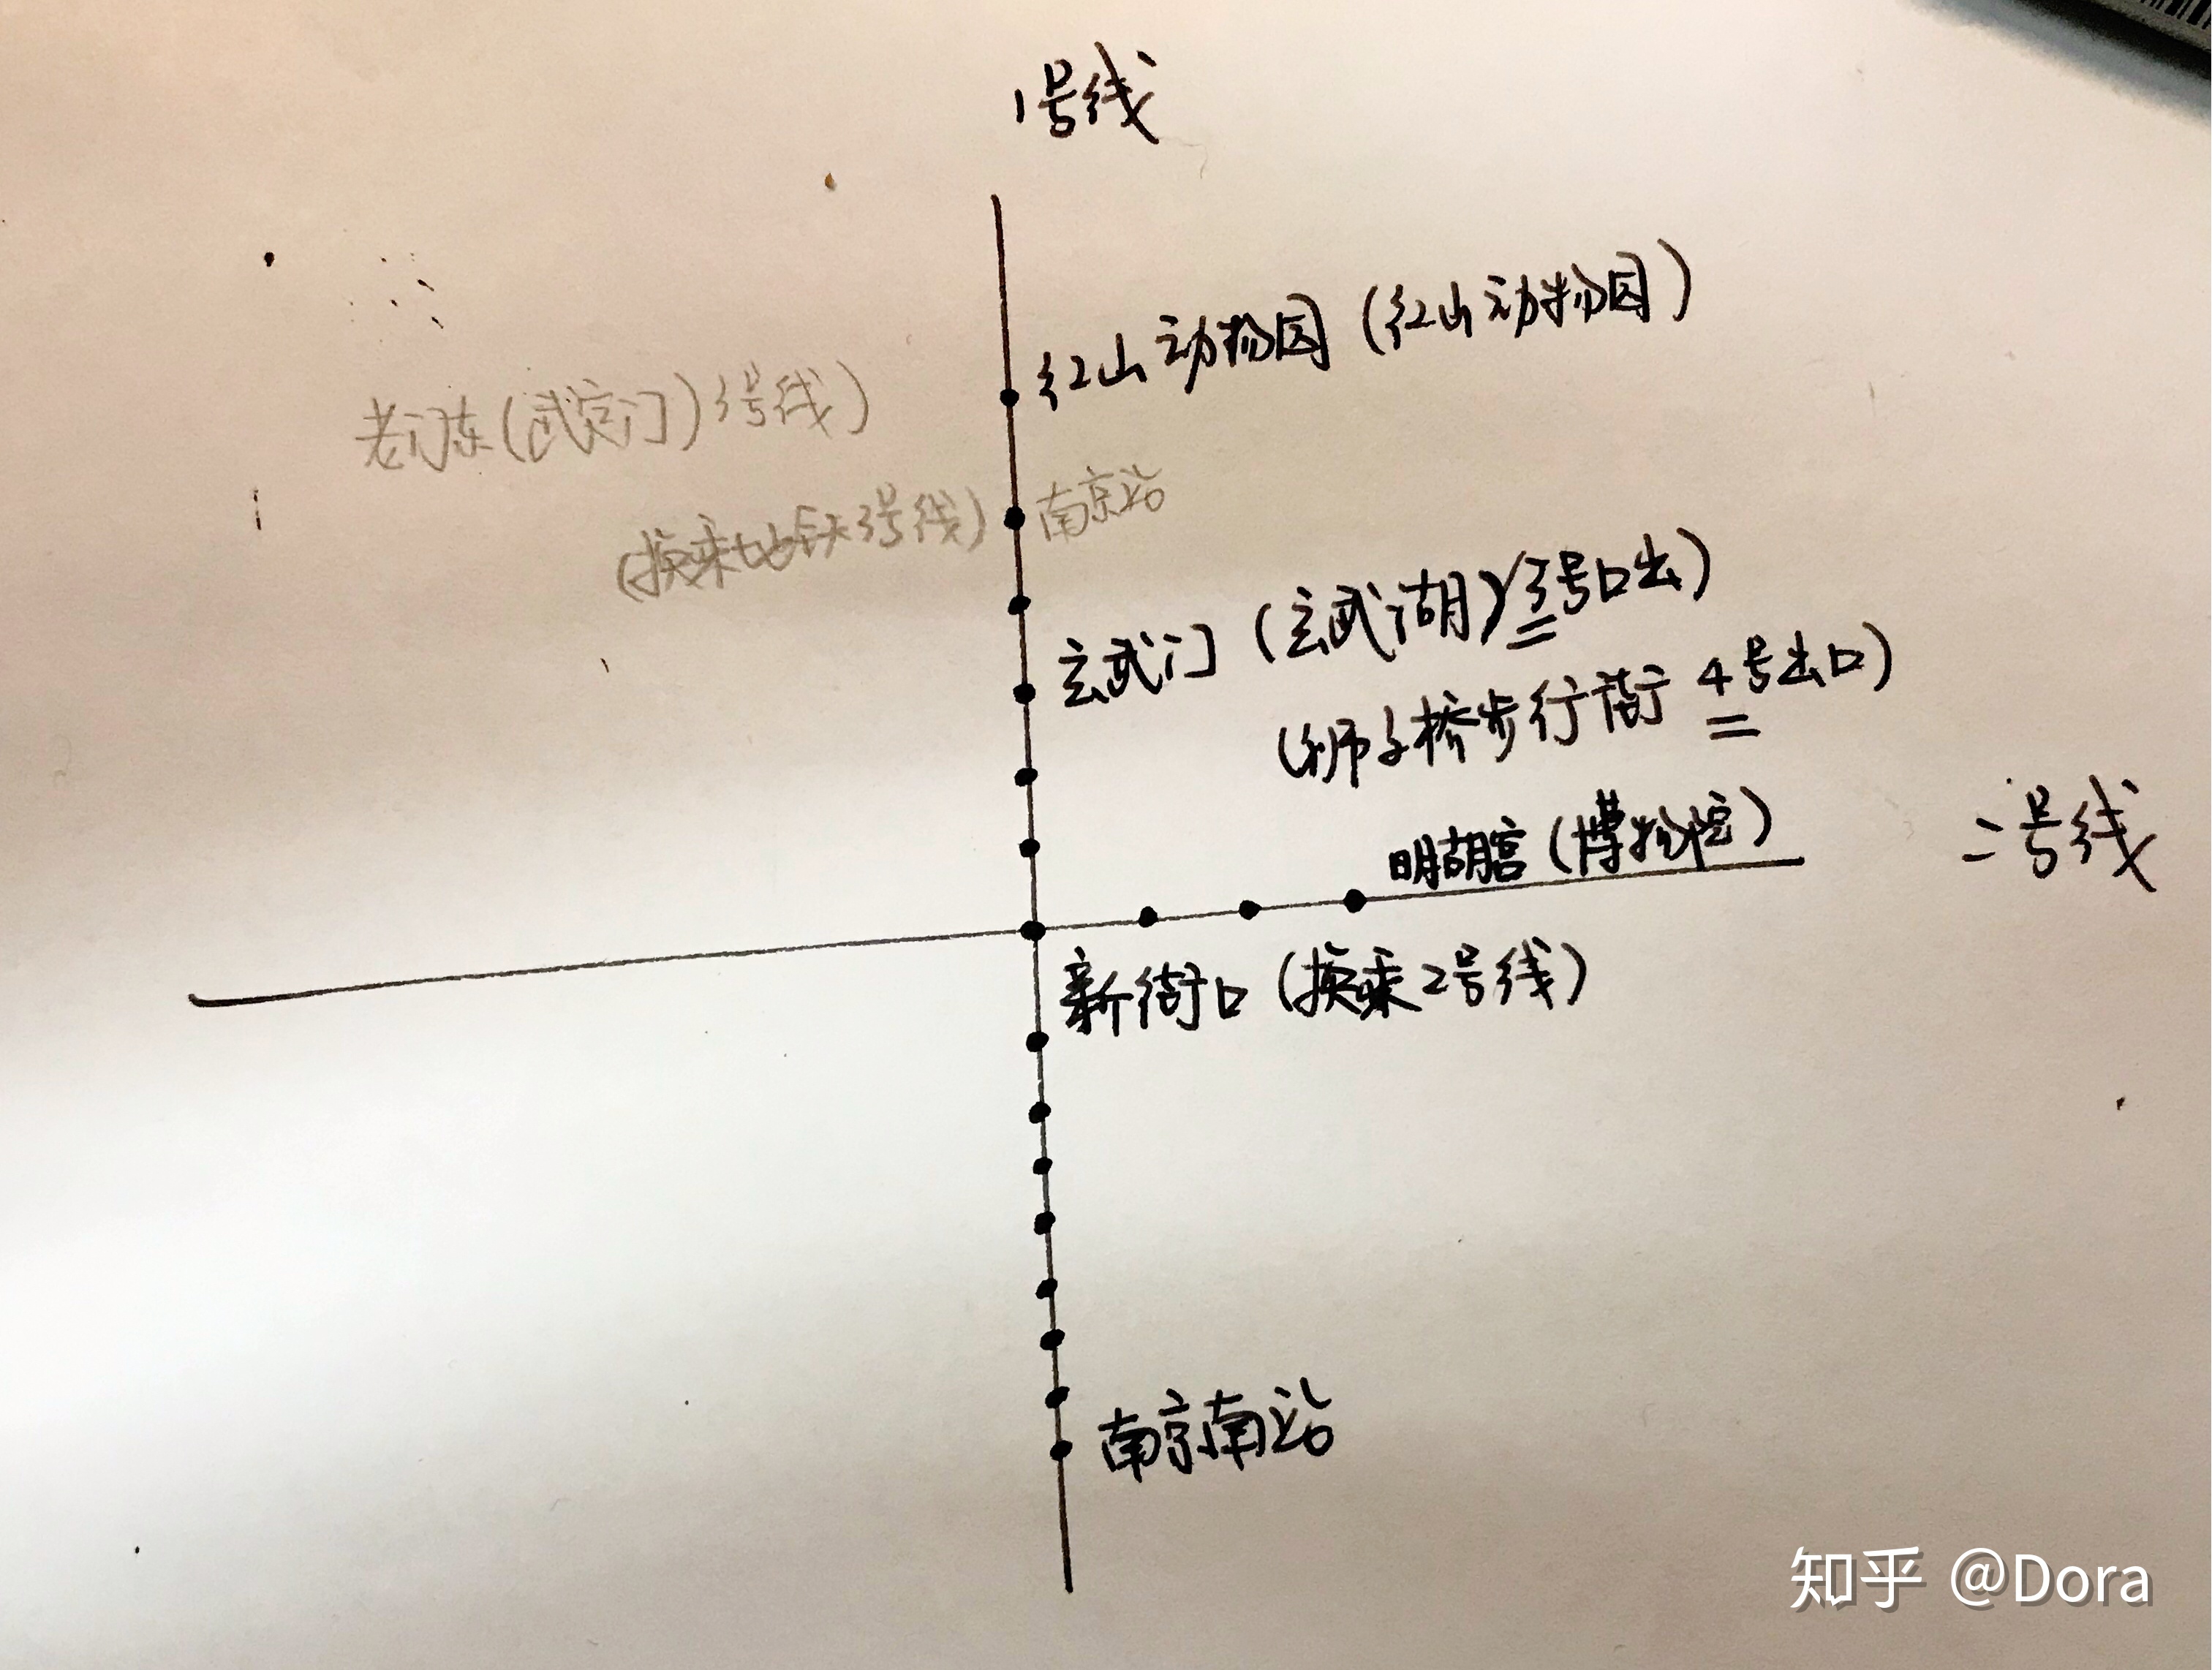 1号线
红山动物园(红山动物园)
老门东(武定门)3号线)
(换乘地铁3号线) 南京站
玄武门(玄武湖)(3号口出)
(狮子桥步行街 4号出口)
明胡宫(博物馆)
二号线
新街口(换乘2号线)
南京南站
知乎 @Dora